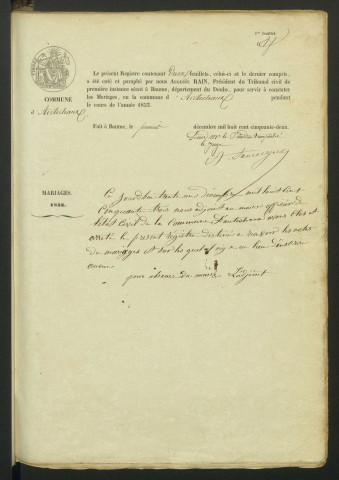 1er feuillet
Le présent Registre contenant Deux feuillets, celui-ci et le dernier compris,
a été coté et paraphé par nous Auguste BAIN, Président du Tribunal civil de
première instance séant à Baume, département du Doubs, pour servir à constater
les Mariages, en la commune d'Autechaux pendant
le cours de l'année 1853.
COMMUNE
d'Autechaux
Fait à Baume, le premier décembre mil huit cent cinquante-deux.
le juge
MARIAGES.
1853.
Ce jourd'hui trente un décembre mil huit cent
Cinquante trois nous adjoint au maire officier de
l'état civil de la Commune d'autechaux avons clos et
arrêté le présent registre destiné à recevoir les actes
de mariages et sur lequel il n'y a eu lieu d'inscrire
aucun
pour absence du maire L'adjoint